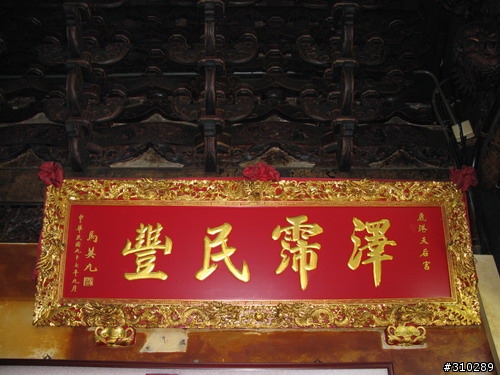 鹿港天后宮
澤霈民豐
中華民國九十七年九月
馬英九
#310289